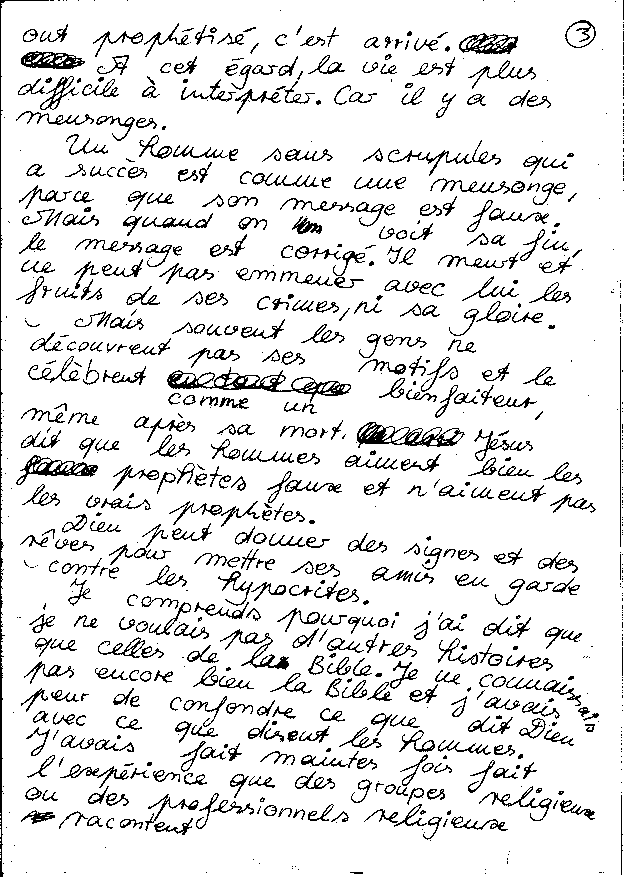 ont prophétisé, c'est arrivé. ③
A cet égard, la vie est plus
difficile à interpréter. Car il y a des
mensonges.
Un homme sans scrupules qui
a succès est comme une mensonge,
parce que son message est faux.
Mais quand on voit sa fin,
le message est corrigé. Il meurt et
ne peut pas emmener avec lui les
fruits de ses crimes, ni sa gloire.
Mais souvent les gens ne
découvrent pas ses motifs et le
célèbrent comme un bienfaiteur,
même après sa mort. Jésus
dit que les hommes aiment bien les
prophètes faux et n'aiment pas
les vrais prophètes.
Dieu peut donner des signes et des
rêves pour mettre ses amis en garde
contre les hypocrites.
Je comprends pourquoi j'ai dit que
je ne voulais pas d'autres histoires
que celles de la Bible. Je ne connaissais
pas encore bien la Bible et j'avais
peur de confondre ce que dit Dieu
avec ce que disent les hommes.
J'avais fait maintes fois fait
l'expérience que des groupes religieux
ou des professionnels religieux
racontent